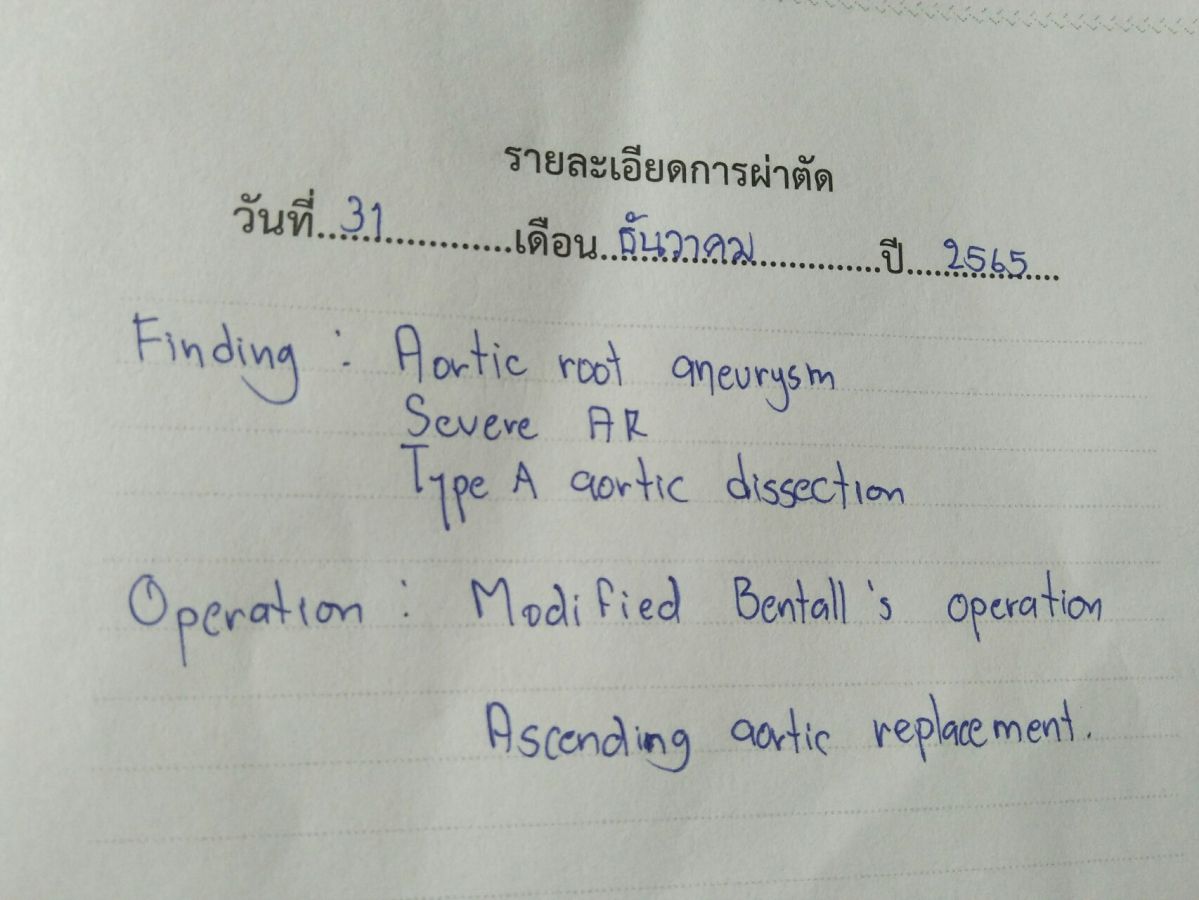 รายละเอียดการผ่าตัด
วันที่...31...............เดือน...ธันวาคม...............ปี.....2565.....
Finding : Aortic root aneurysm
Severe AR
Type A aortic dissection
Operation : Modified Bentall's operation
Ascending aortic replacement.